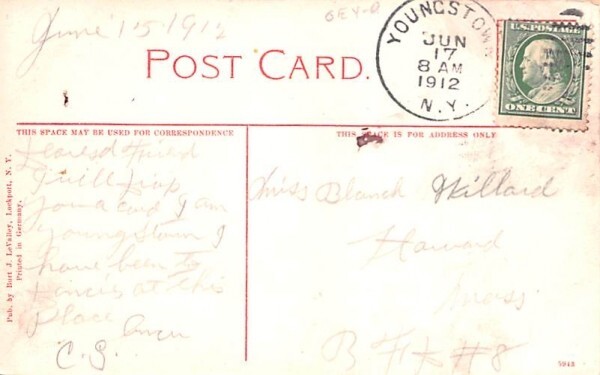 June 15 1912
POST CARD.
YOUNGSTOWN
JUN
17
8 AM
1912
N.Y.
U.S. POSTAGE
ONE CENT
THIS SPACE MAY BE USED FOR CORRESPONDENCE
THIS SPACE IS FOR ADDRESS ONLY
Pub. by Burt J. LeValley, Lockport, N. Y.
Printed in Germany.
I will drop
you a card I am
Youngstown I
have been to
at this
Place
C.S.
Miss Blanch Willard
Harvard
Mass
#8
5943